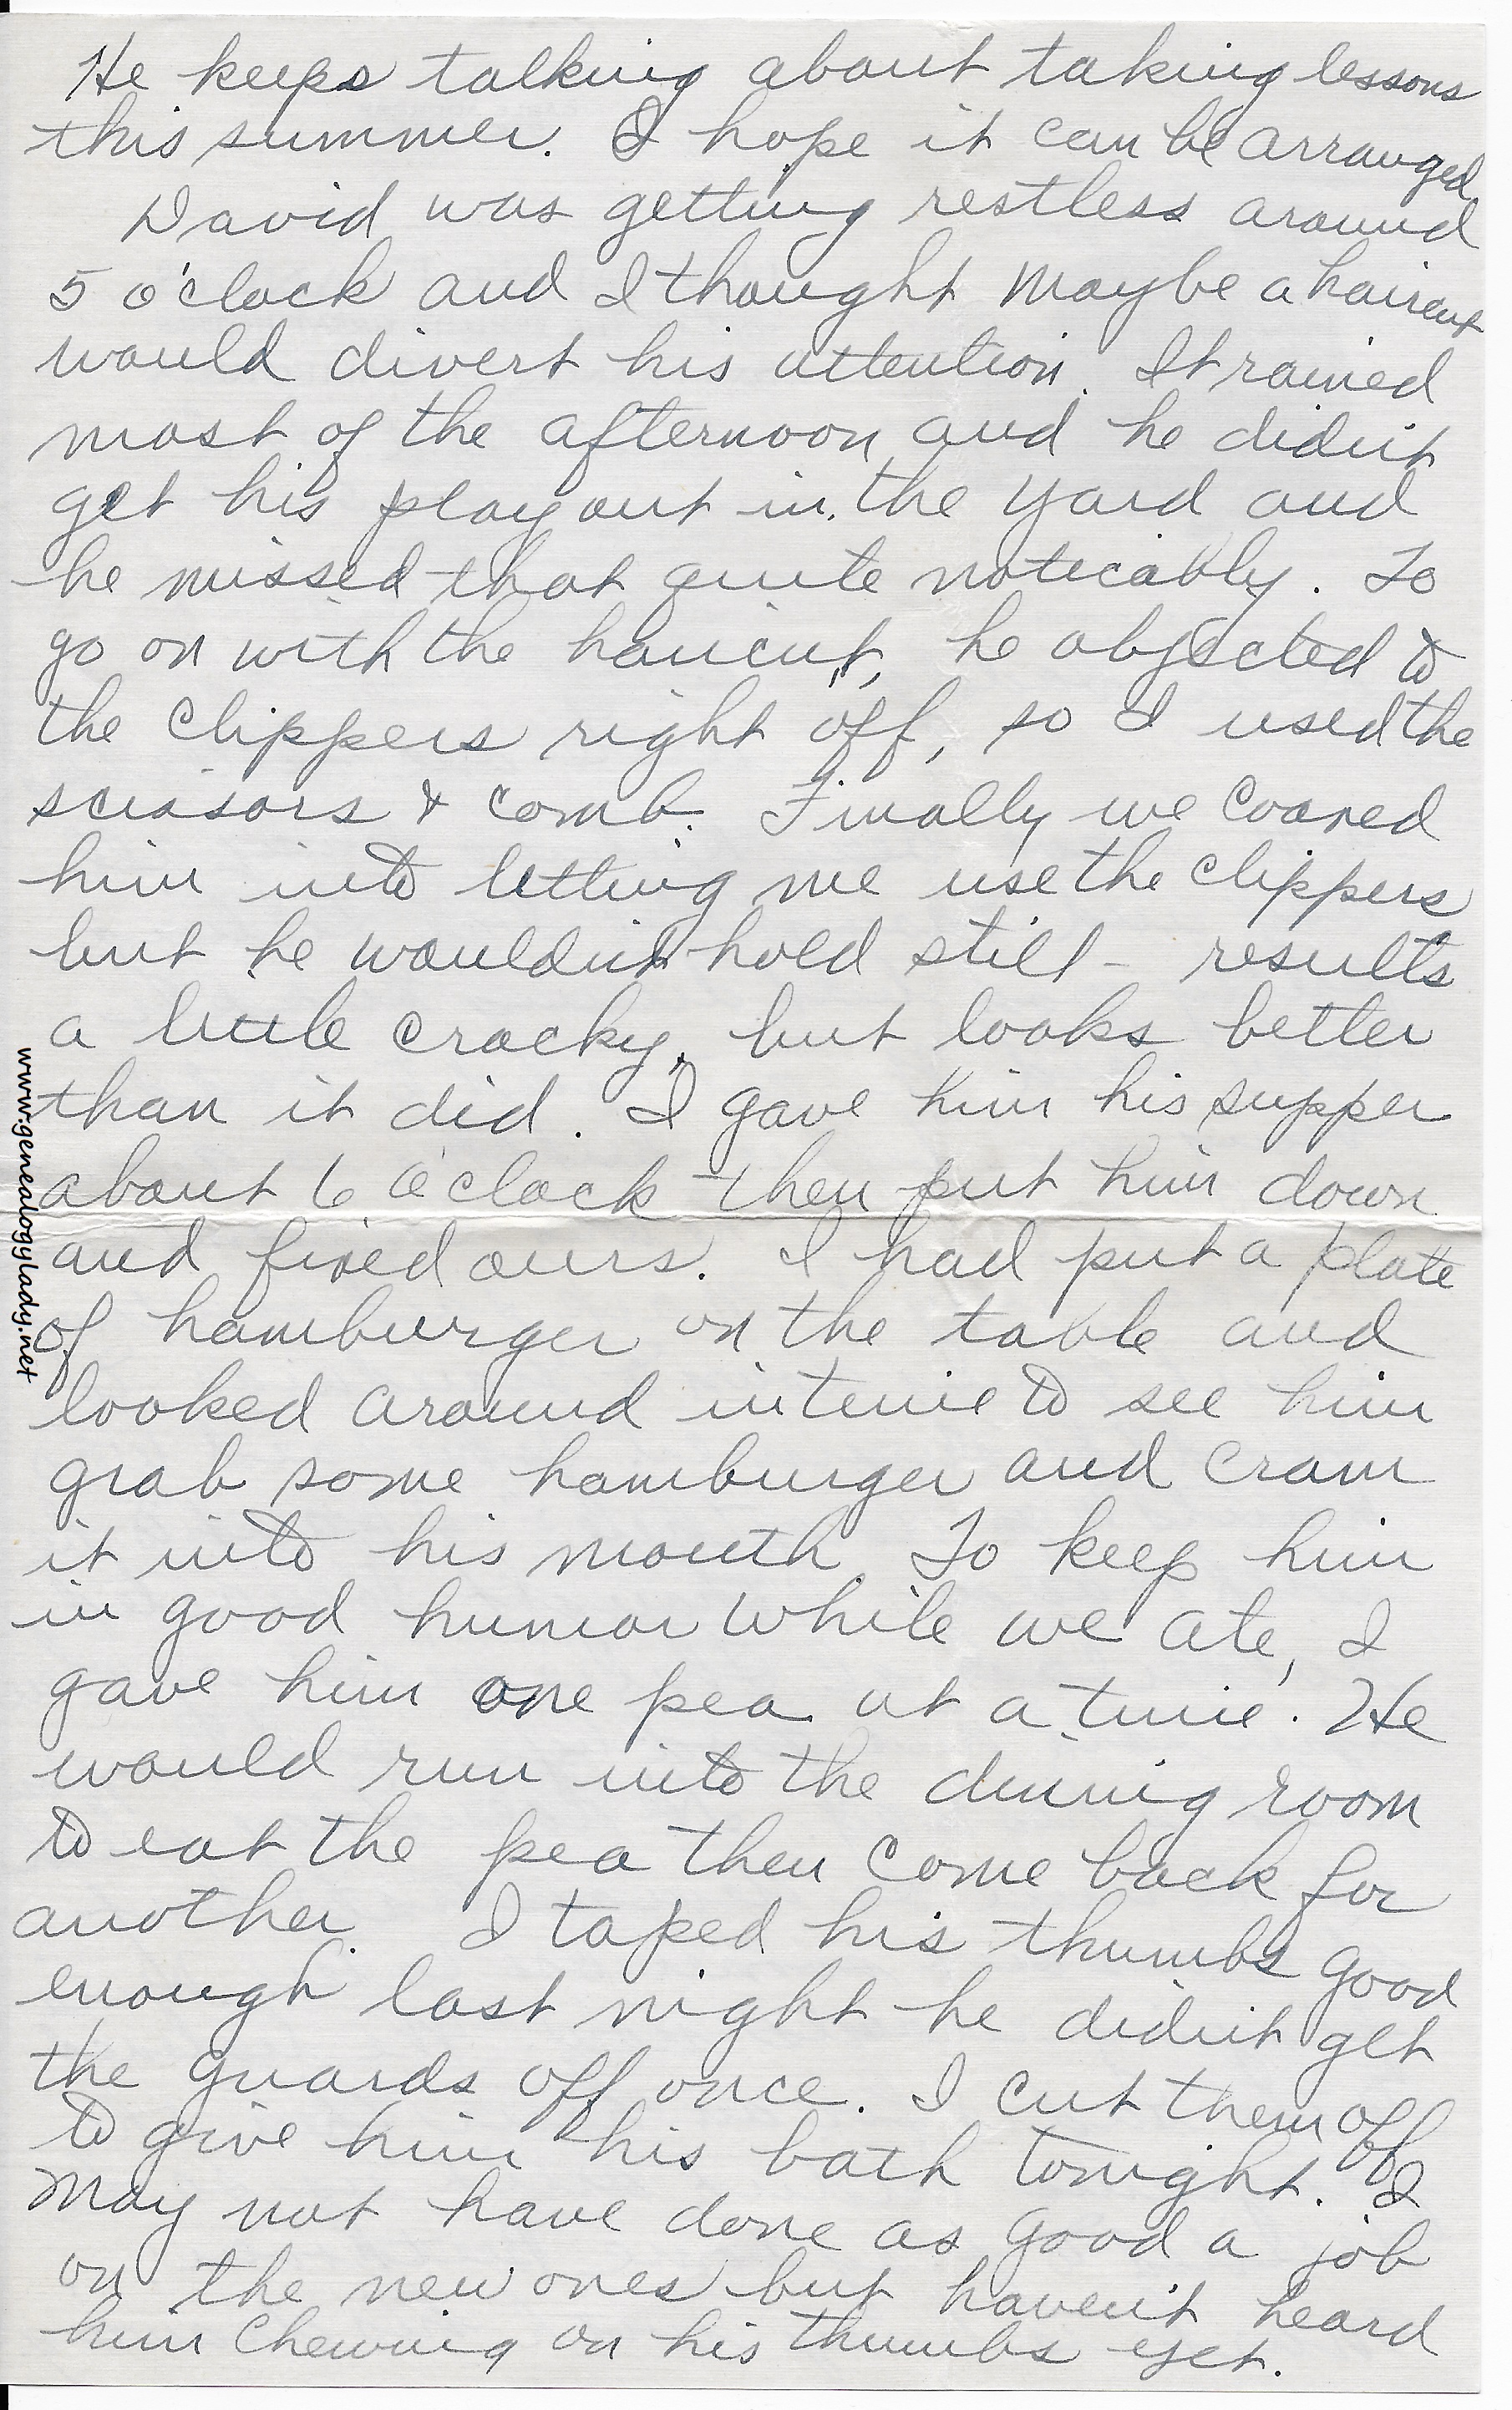 He keeps talking about taking lessons
this summer. I hope it can be arranged.
David was getting restless around
5 o'clock and I thought maybe a haircut
would divert his attention. It rained
most of the afternoon and he didn't
get his play out in the yard and
he missed that quite noticably. To
go on with the haircut, he objected to
the clippers right off, so I used the
scissors & comb. Finally we coaxed
him into letting me use the clippers
but he wouldn't hold still - results
a little cracky, but looks better
than it did. I gave him his supper
about 6 o'clock then put him down
and fixed ours. I had put a plate
of hamburger on the table and
looked around in time to see him
grab some hamburger and cram
it into his mouth. To keep him
in good humor while we ate, I
gave him one pea at a time. He
would run into the dining room
to eat the pea then come back for
another. I taped his thumbs good
enough last night he didn't get
the guards off once. I cut them off
to give him his bath tonight. I
may not have done as good a job
on the new ones but haven't heard
him chewing on his thumbs yet.
www.genealogylady.net